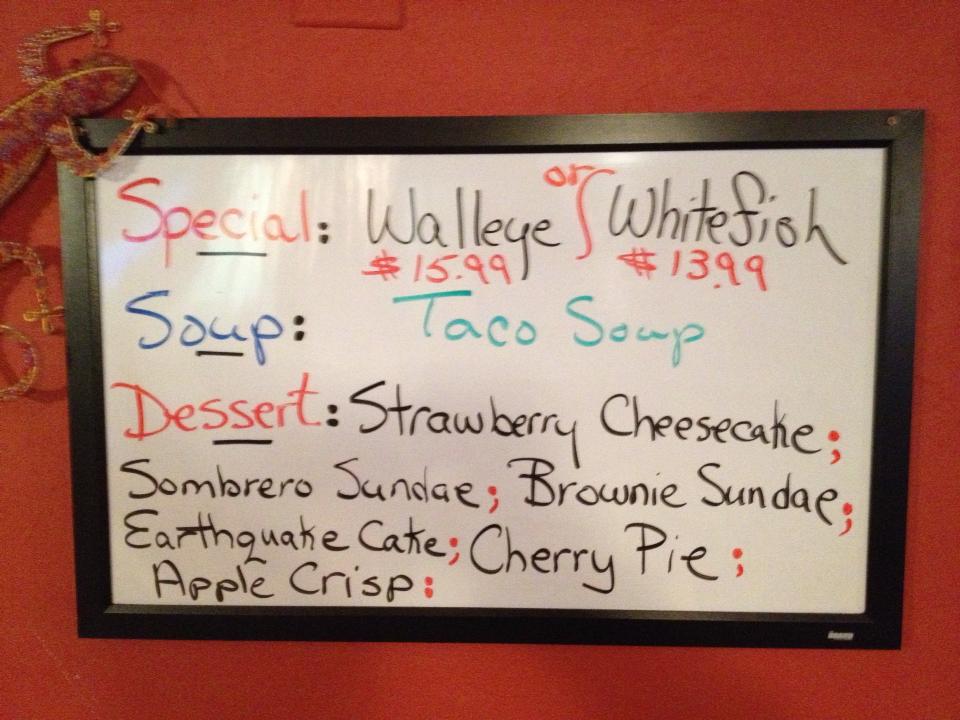 Special: Walleye or Whitefish
$15.99 $13.99
Soup: Taco Soup
Dessert: Strawberry Cheesecake;
Sombrero Sundae; Brownie Sundae;
Earthquake Cake; Cherry Pie;
Apple Crisp: